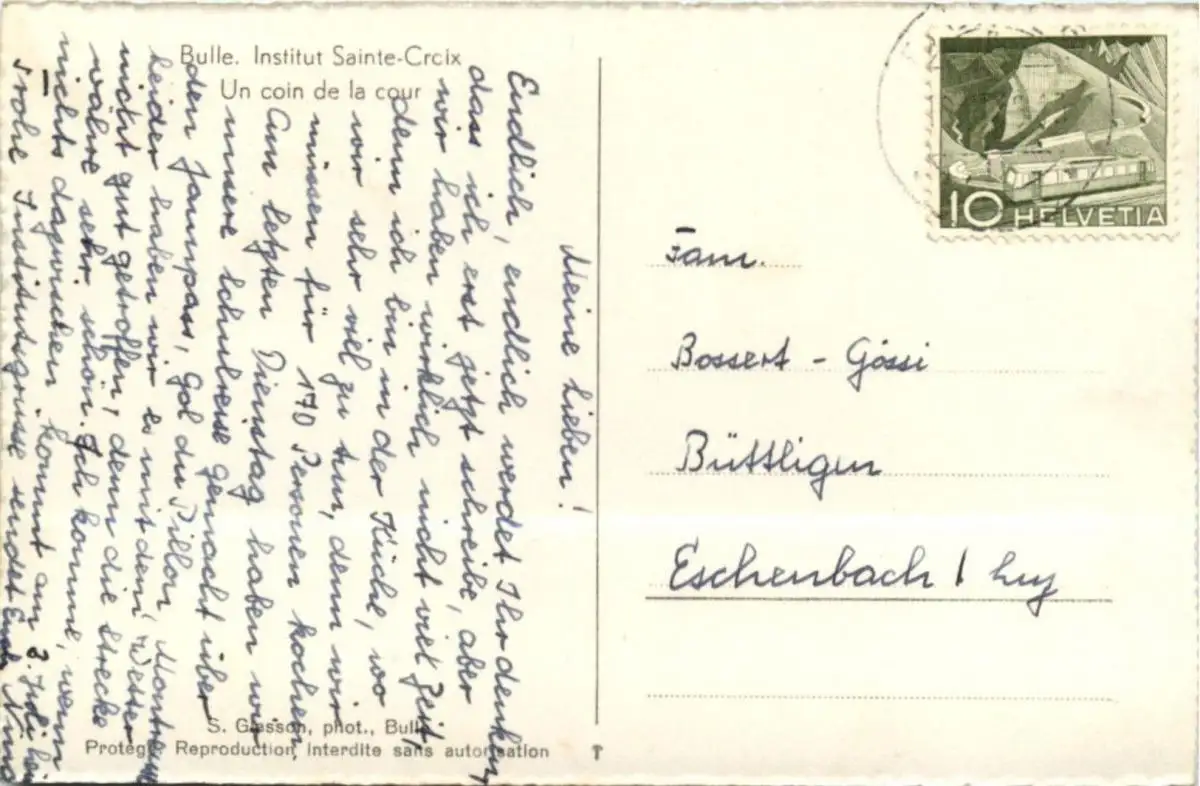 Bulle. Institut Sainte-Croix
Un coin de la cour
Meine Lieben!
Endlich, endlich werdet Ihr denken,
dass ich erst jetzt schreibe, aber
wir haben wirklich nicht viel Zeit,
denn ich bin in der Küche, wo
wir sehr viel zu tun, denn wir
müssen für 170 Personen kochen.
Am letzten Dienstag haben wir
unsere Schulreise gemacht über
den Jaunpass, Gol du Pillon, Montreux
leider haben wir es mit dem Wetter
nicht gut getroffen, denn die Strecke
währe sehr schön. Ich komme, wenn
nichts dazwischen kommt am 3. Juli heim
Frohe Institutsgrüsse sendet Euch Nina
S. Glasson, phot., Bulle
Protégé Reproduction interdite sans autorisation
10 HELVETIA
Fam.
Bossert - Gössi
Büttligen
Eschenbach / Luz